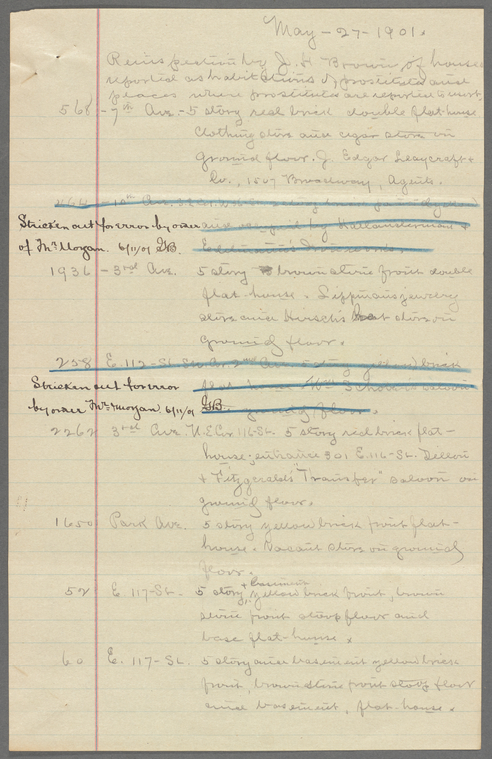 May - 27 - 1901.
Reinspection by J. H. Brown, of houses
reported as habitations of prostitutes and
places where prostitutes are reported to exist.
568 - 7th Ave. - 5 story red brick double flat-house
Clothing store and cigar store on
ground floor. J. Edgar Leaycraft +
Co., 1507 Broadway, Agents.
Stricken out for error by order
of Mr. Morgan. 6/11/01 GB.
1936 - 3rd Ave. 5 story brown stone front double
flat-house. Lippmans jewelry
store and Hirsch's hat store on
ground floor.
258 E. 112-St.
Stricken out for error
by order Mr. Morgan 6/11/01 GB
2262 3rd Ave. N.E.Cor 116-St. 5 story red brick flat-
house; entrance 301 E. 116-St.
+ Fitzgerald's "Transfer" saloon on
ground floor.
1650 Park Ave. 5 story yellow brick front flat-
house. Vacant store on ground
floor.
52 E 117-St. 5 story + basement, yellow brick front, brown
stone front stoop floor and
base flat-house.
60 E. 117-St. 5 story and basement yellow brick
front, brown stone front stoop floor
and basement, flat-house.